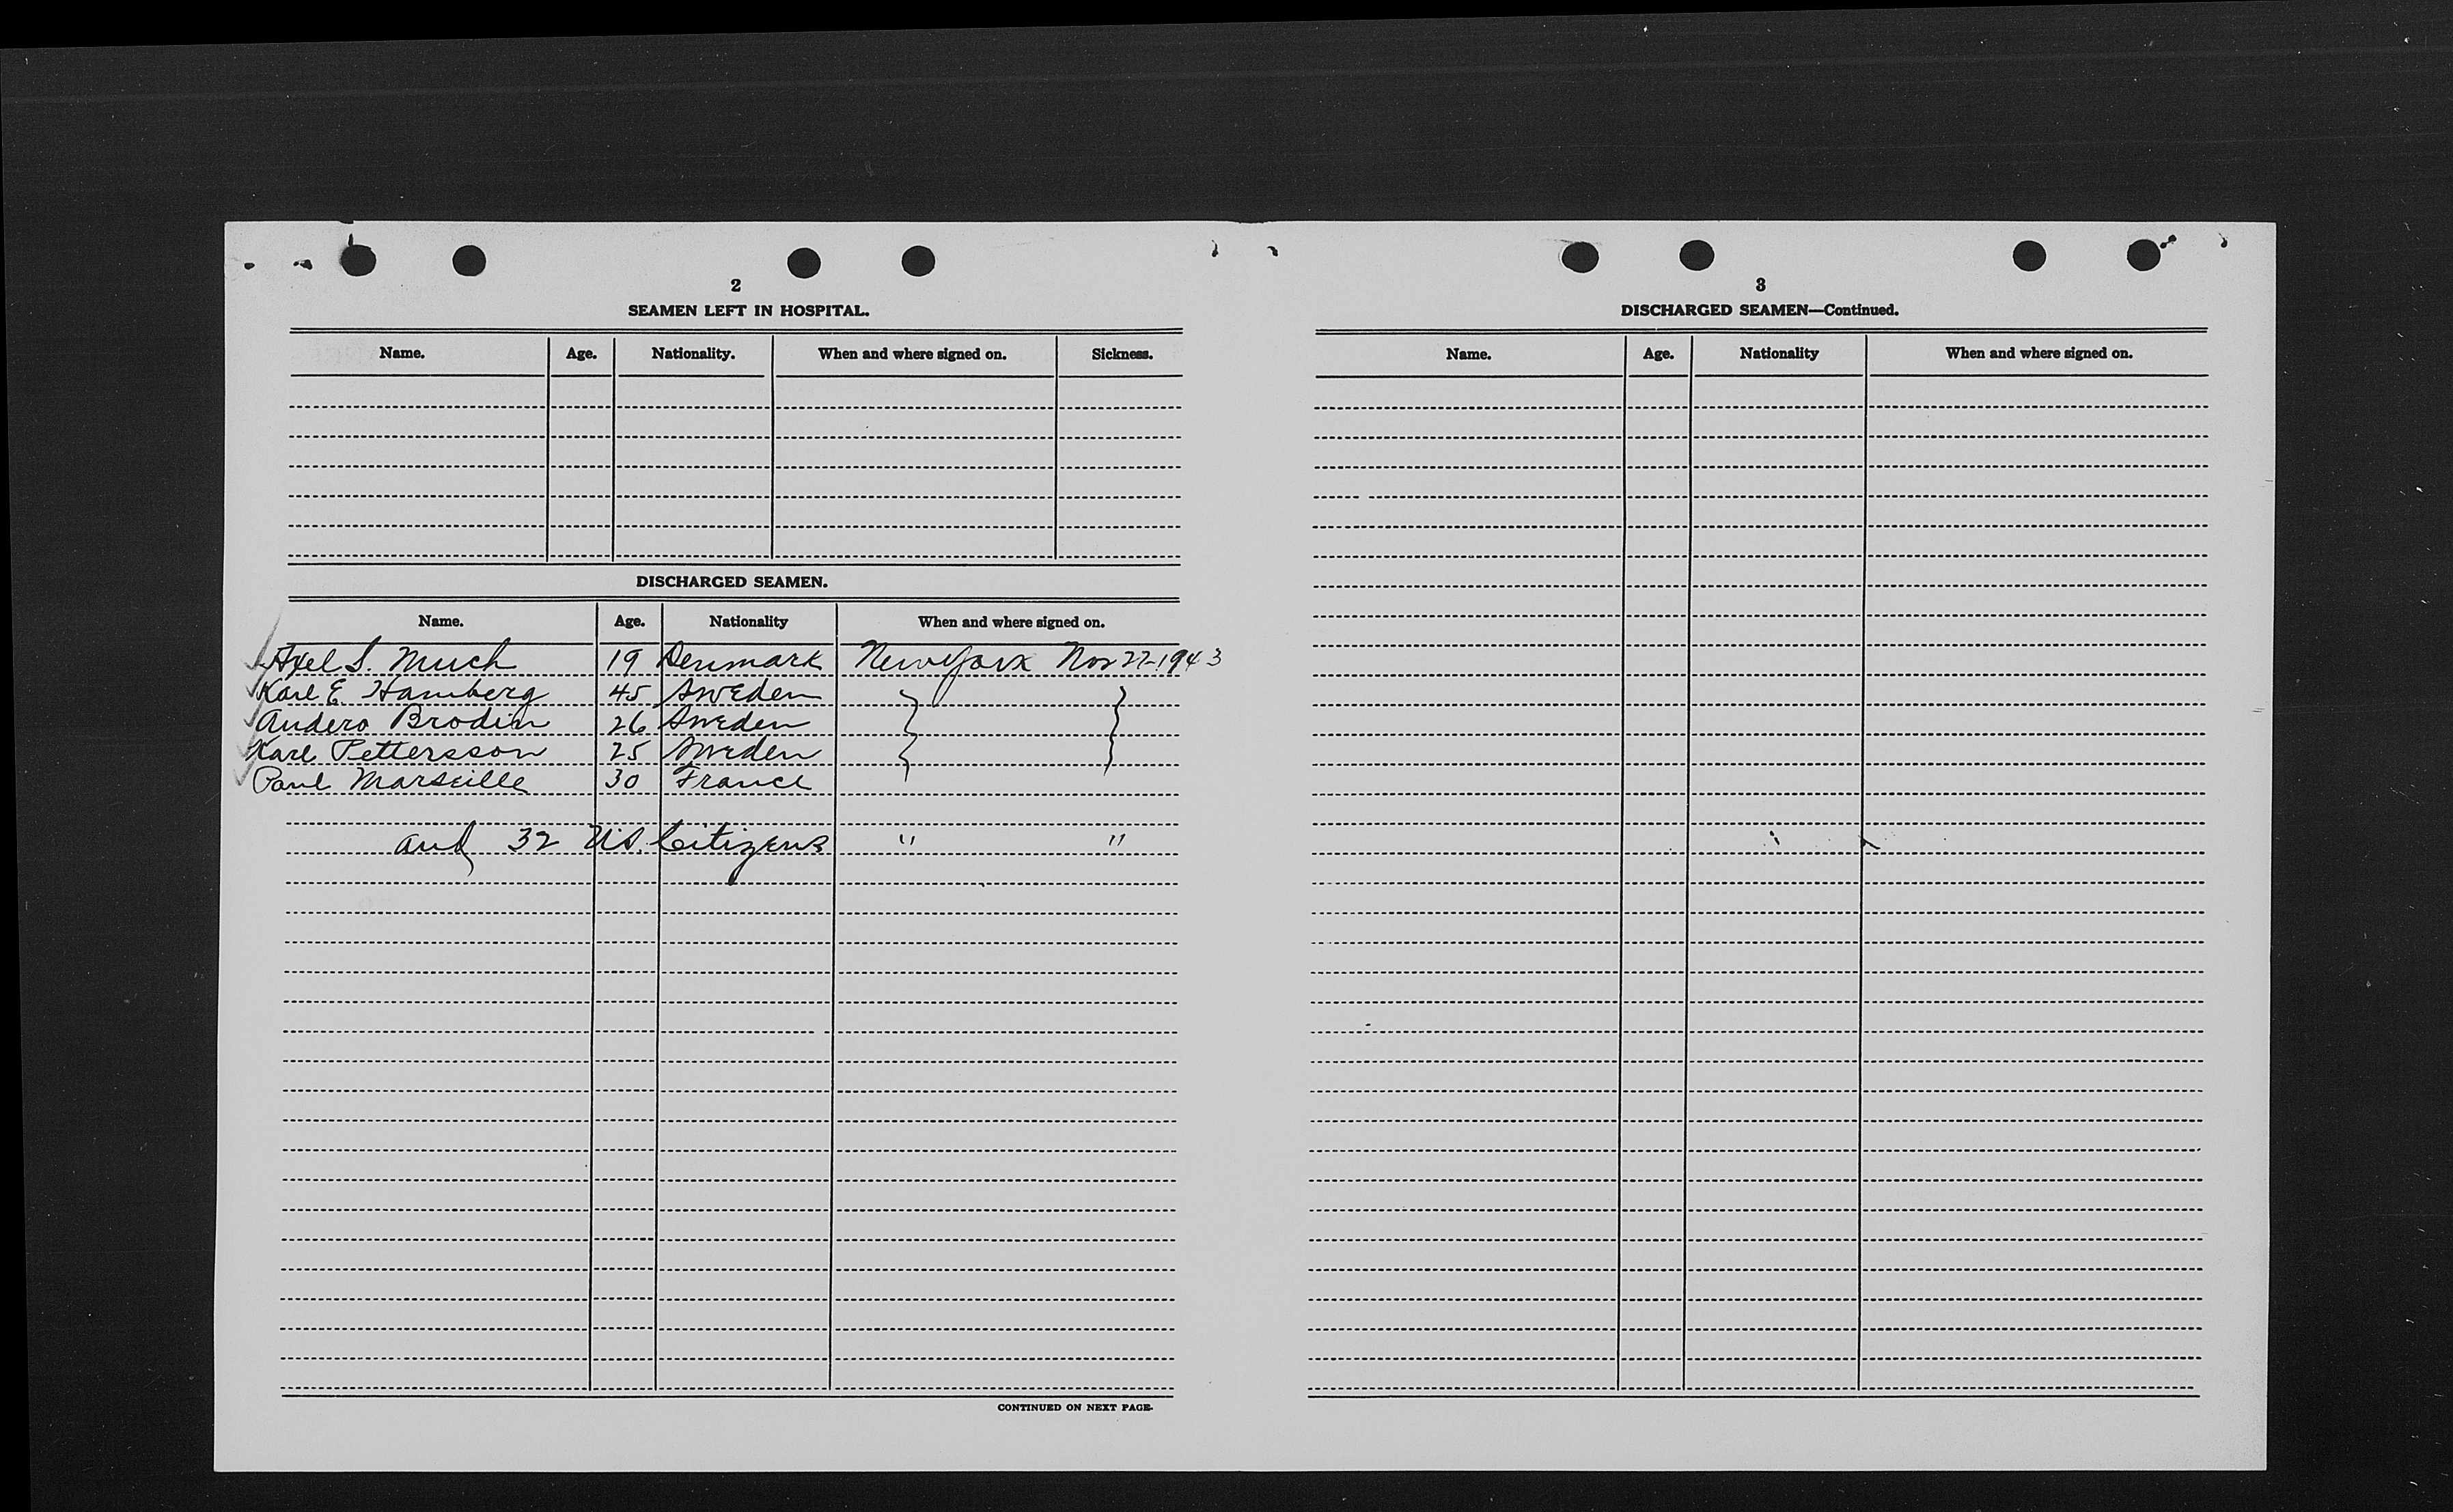 2
SEAMEN LEFT IN HOSPITAL.
Name. Age. Nationality. When and where signed on. Sickness.
DISCHARGED SEAMEN.
Name. Age. Nationality When and where signed on.
Axel S. Much 19 Denmark New York Nov 27-1943
Karl E. Hamberg 45 Sweden } }
Anders Brodin 26 Sweden
Karl Pettersson 25 Sweden
Paul Marseille 30 France
and 32 U.S. Citizens " "
CONTINUED ON NEXT PAGE-
3
DISCHARGED SEAMEN—Continued.
Name. Age. Nationality When and where signed on.